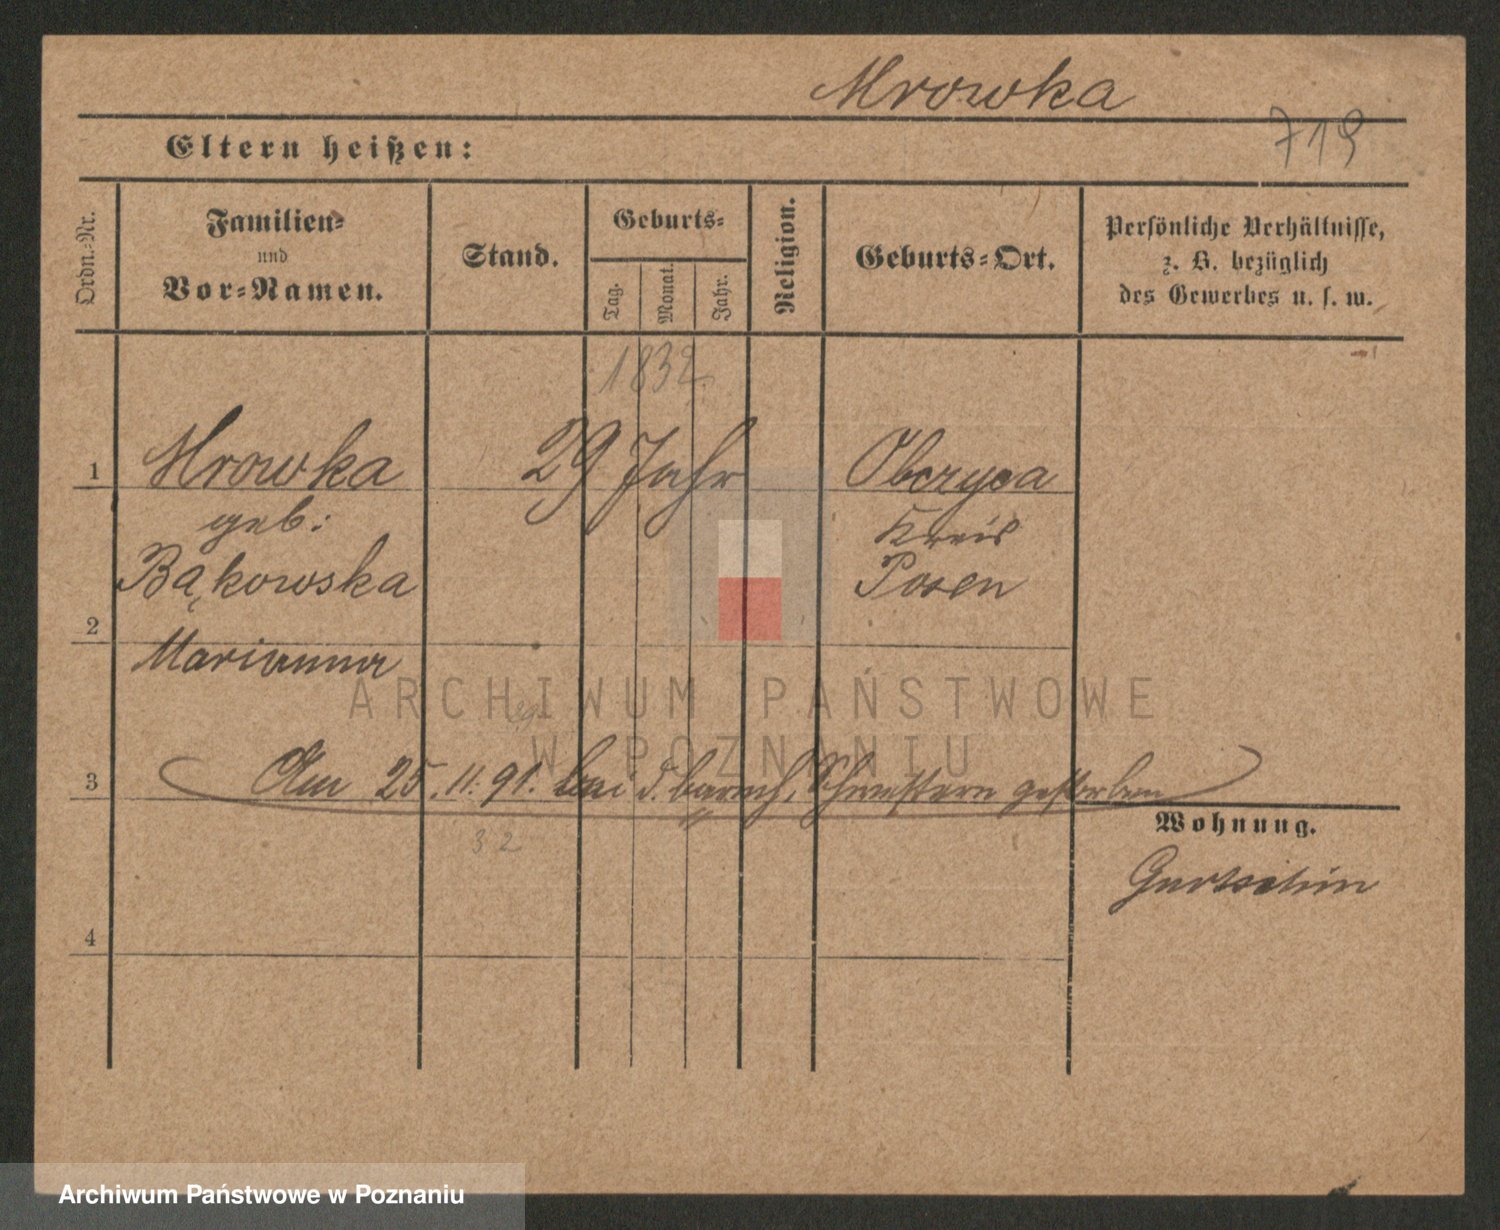 Mrowka
719
Eltern heißen:
Ordn.-Nr.
Familien-
und
Vor-Namen.
Stand.
Geburts-
Tag.
Monat.
Jahr.
Religion.
Geburts-Ort.
Persönliche Verhältnisse,
z. B. bezüglich
des Gewerbes u. s. w.
1832
1 Mrowka 29 Jahr
geb: Kreis
Bąkowska Posen
2
Marianna
ARCHIWUM PAŃSTWOWE
W POZNANIU
3 Am 25.11.91. bei d. barmh. Schwestern gestorben
Wohnung.
32
4
Archiwum Państwowe w Poznaniu